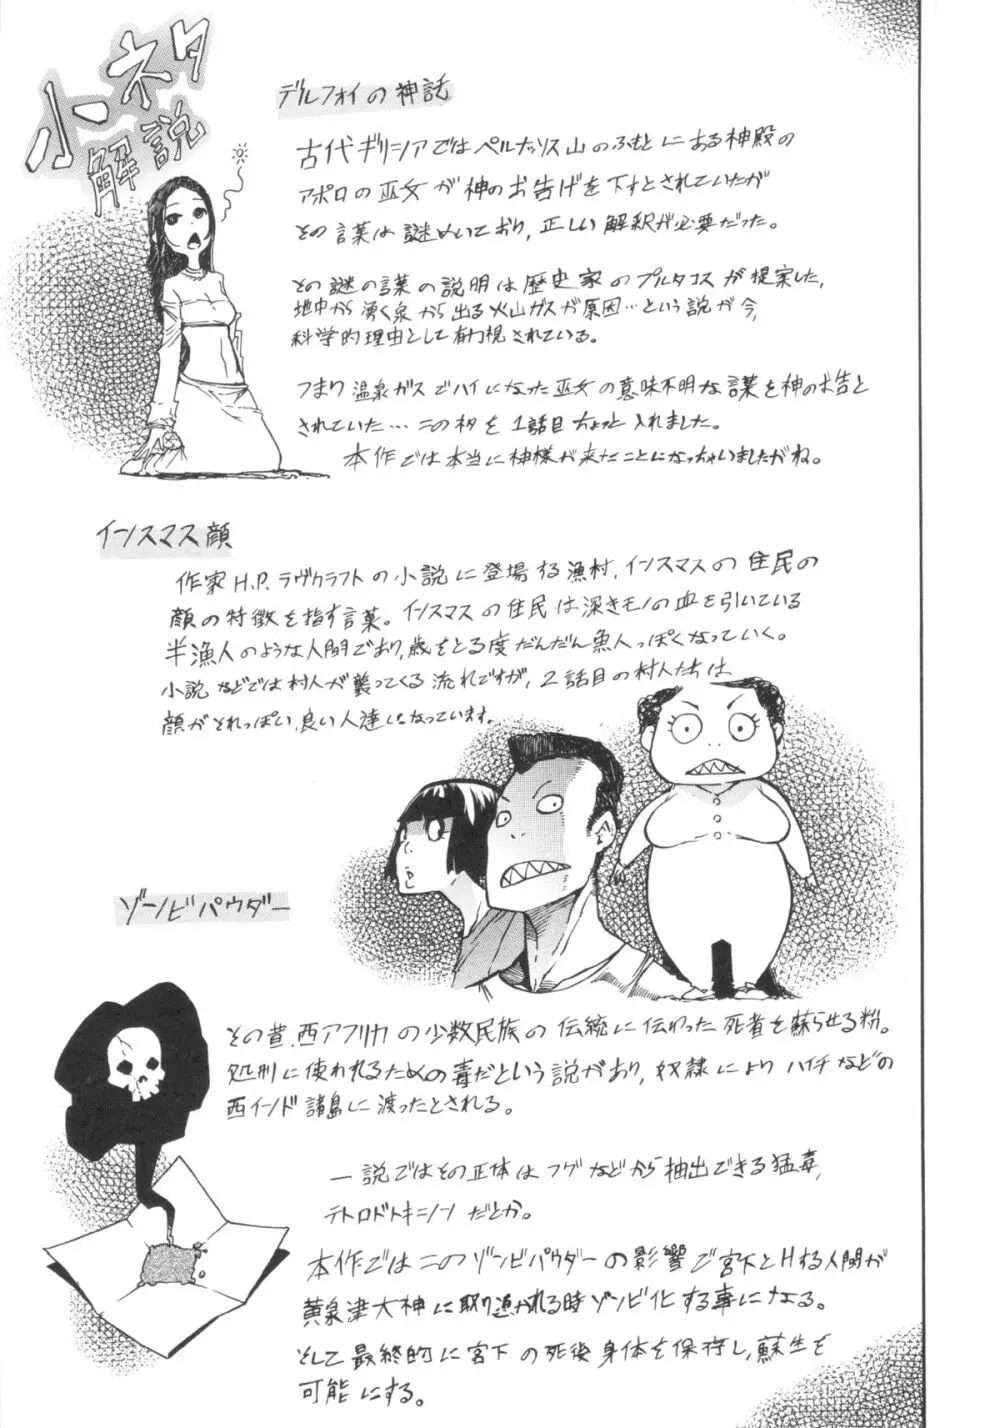 小ネタ
解説
デルフォイの神話
古代ギリシアではペルナッソス山のふもとにある神殿の
アポロの巫女が神のお告げを下すとされていたが
その言葉は謎めいており、正しい解釈が必要だった。
その謎の言葉の説明は歴史家のプルタコスが提案した、
地中から湧く泉から出る火山ガスが原因…という説が今、
科学的理由として有力視されている。
つまり温泉ガスでハイになった巫女の意味不明な言葉を神のお告と
されていた…このネタを1話目ちょっと入れました。
本作では本当に神様が来たことになっちゃいましたがね。
インスマス顔
作家H.P.ラヴクラフトの小説に登場する漁村、インスマスの住民の
顔の特徴を指す言葉。インスマスの住民は深きモノの血を引いている
半漁人のような人間であり、歳をとる度だんだん魚人っぽくなっていく。
小説などでは村人が襲ってくる流れですが、2話目の村人たちは
顔がそれっぽい、良い人達になっています。
ゾンビパウダー
その昔、西アフリカの少数民族の伝統に伝わった死者を蘇らせる粉。
処刑に使われるための毒だという説があり、奴隷によりハイチなどの
西インド諸島に渡ったとされる。
一説ではその正体はフグなどから抽出できる猛毒、
テトロドトキシン だとか。
本作ではこのゾンビパウダーの影響で宮下とHする人間が
黄泉津大神に取り憑かれる時ゾンビ化する事になる。
そして最終的に宮下の死後身体を保存し、蘇生を
可能にする。